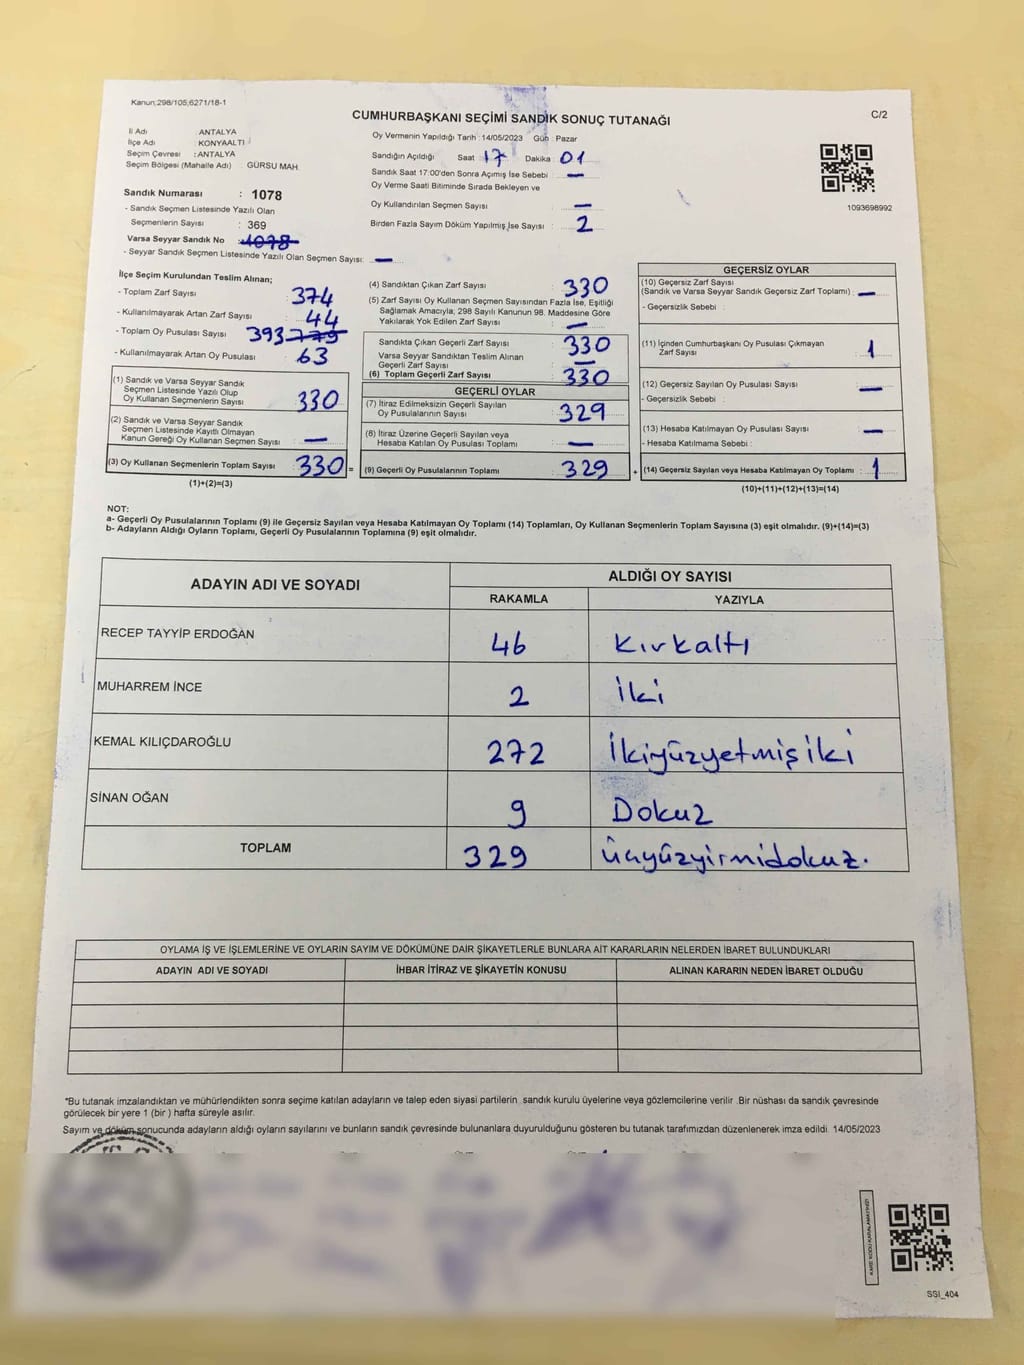 Kanun;298/105;6271/18-1
C/2
CUMHURBAŞKANI SEÇİMİ SANDIK SONUÇ TUTANAĞI
İl Adı : ANTALYA
İlçe Adı : KONYAALTI
Seçim Çevresi : ANTALYA
Seçim Bölgesi (Mahalle Adı) : GÜRSU MAH.
Sandık Numarası : 1078
- Sandık Seçmen Listesinde Yazılı Olan
Seçmenlerin Sayısı : 369
Varsa Seyyar Sandık No : 1078
- Seyyar Sandık Seçmen Listesinde Yazılı Olan Seçmen Sayısı: —
Oy Vermenin Yapıldığı Tarih : 14/05/2023 Gün : Pazar
Sandığın Açıldığı Saat : 17 Dakika : 01
Sandık Saat 17:00'den Sonra Açımış İse Sebebi : —
Oy Verme Saati Bitiminde Sırada Bekleyen ve
Oy Kullandırılan Seçmen Sayısı : —
Birden Fazla Sayım Döküm Yapılmış İse Sayısı : 2
1093698992
İlçe Seçim Kurulundan Teslim Alınan;
- Toplam Zarf Sayısı : 374
- Kullanılmayarak Artan Zarf Sayısı : 44
- Toplam Oy Pusulası Sayısı 393
- Kullanılmayarak Artan Oy Pusulası : 63
(1) Sandık ve Varsa Seyyar Sandık
Seçmen Listesinde Yazılı Olup
Oy Kullanan Seçmenlerin Sayısı : 330
(2) Sandık ve Varsa Seyyar Sandık
Seçmen Listesinde Kayıtlı Olmayan
Kanun Gereği Oy Kullanan Seçmen Sayısı : —
(3) Oy Kullanan Seçmenlerin Toplam Sayısı : 330 =
(1)+(2)=(3)
(4) Sandıktan Çıkan Zarf Sayısı : 330
(5) Zarf Sayısı Oy Kullanan Seçmen Sayısından Fazla İse, Eşitliği
Sağlamak Amacıyla, 298 Sayılı Kanunun 98. Maddesine Göre
Yakılarak Yok Edilen Zarf Sayısı : —
Sandıkta Çıkan Geçerli Zarf Sayısı : 330
Varsa Seyyar Sandıktan Teslim Alınan
Geçerli Zarf Sayısı : —
(6) Toplam Geçerli Zarf Sayısı : 330
GEÇERLİ OYLAR
(7) İtiraz Edilmeksizin Geçerli Sayılan
Oy Pusulalarının Sayısı : 329
(8) İtiraz Üzerine Geçerli Sayılan veya
Hesaba Katılan Oy Pusulası Toplamı : —
(9) Geçerli Oy Pusulalarının Toplamı : 329 +
GEÇERSİZ OYLAR
(10) Geçersiz Zarf Sayısı
(Sandık ve Varsa Seyyar Sandık Geçersiz Zarf Toplamı) : —
- Geçersizlik Sebebi :
(11) İçinden Cumhurbaşkanı Oy Pusulası Çıkmayan
Zarf Sayısı : 1
(12) Geçersiz Sayılan Oy Pusulası Sayısı : —
- Geçersizlik Sebebi :
(13) Hesaba Katılmayan Oy Pusulası Sayısı : —
- Hesaba Katılmama Sebebi :
(14) Geçersiz Sayılan veya Hesaba Katılmayan Oy Toplamı : 1
(10)+(11)+(12)+(13)=(14)
NOT:
a- Geçerli Oy Pusulalarının Toplamı (9) ile Geçersiz Sayılan veya Hesaba Katılmayan Oy Toplamı (14) Toplamları, Oy Kullanan Seçmenlerin Toplam Sayısına (3) eşit olmalıdır. (9)+(14)=(3)
b- Adayların Aldığı Oyların Toplamı, Geçerli Oy Pusulalarının Toplamına (9) eşit olmalıdır.
ADAYIN ADI VE SOYADI
ALDIĞI OY SAYISI
RAKAMLA YAZIYLA
RECEP TAYYİP ERDOĞAN 46 Kırkaltı
MUHARREM İNCE 2 İki
KEMAL KILIÇDAROĞLU 272 İkiyüzyetmişiki
SİNAN OĞAN 9 Dokuz
TOPLAM 329 üçyüzyirmidokuz.
OYLAMA İŞ VE İŞLEMLERİNE VE OYLARIN SAYIM VE DÖKÜMÜNE DAİR ŞİKAYETLERLE BUNLARA AİT KARARLARIN NELERDEN İBARET BULUNDUKLARI
ADAYIN ADI VE SOYADI İHBAR İTİRAZ VE ŞİKAYETİN KONUSU ALINAN KARARIN NEDEN İBARET OLDUĞU
*Bu tutanak imzalandıktan ve mühürlendikten sonra seçime katılan adayların ve talep eden siyasi partilerin sandık kurulu üyelerine veya gözlemcilerine verilir .Bir nüshası da sandık çevresinde
görülecek bir yere 1 (bir ) hafta süreyle asılır.
Sayım ve döküm sonucunda adayların aldığı oyların sayılarını ve bunların sandık çevresinde bulunanlara duyurulduğunu gösteren bu tutanak tarafımızdan düzenlenerek imza edildi. 14/05/2023
KARE KODU KARALAMAYINIZ!
SSI_404